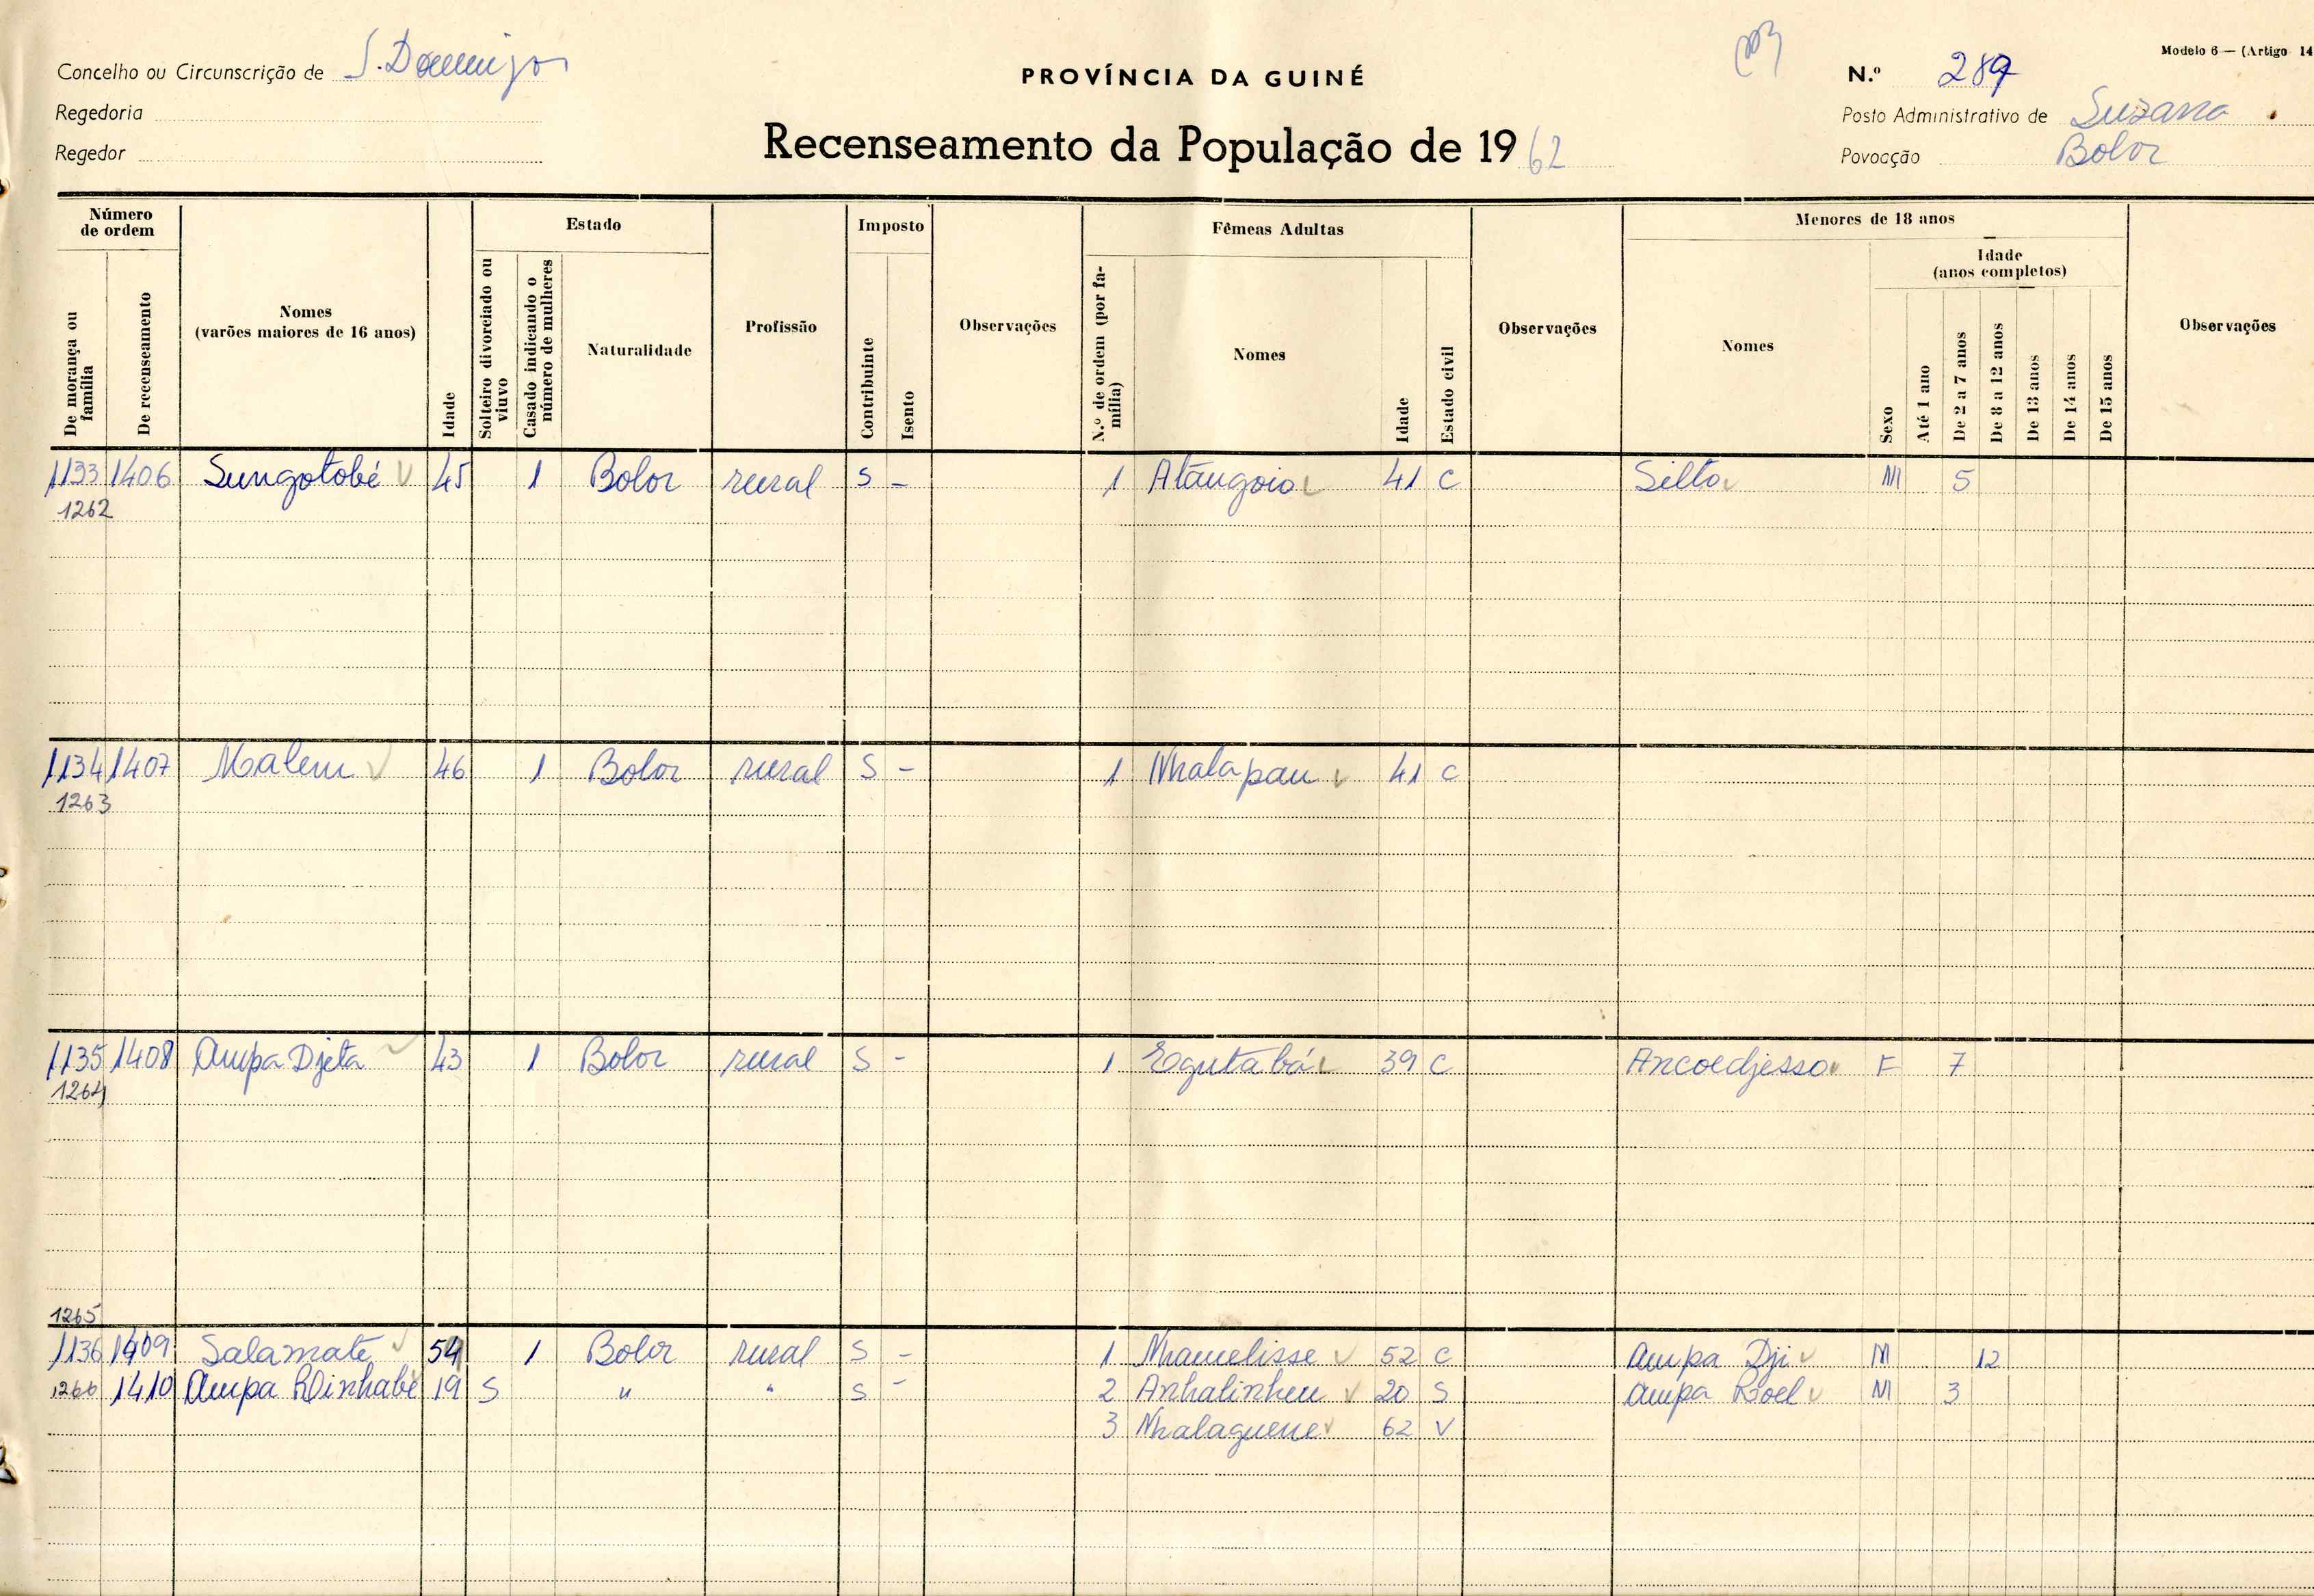 Concelho ou Circunscrição de S. Domingos
Regedoria
Regedor
PROVÍNCIA DA GUINÉ
Recenseamento da População de 1962
Modelo 6 — (Artigo 14
N.º 289
Posto Administrativo de Suzana
Povoação Bolor
Número de ordem
De morança ou família
De recenseamento
Nomes
(varões maiores de 16 anos)
Idade
Estado
Solteiro divorciado ou viuvo
Casado indicando o número de mulheres
Naturalidade
Profissão
Imposto
Contribuinte
Isento
Observações
Fêmeas Adultas
N.º de ordem (por família)
Nomes
Idade
Estado civil
Observações
Menores de 18 anos
Nomes
Sexo
Idade
(anos completos)
Até 1 ano
De 2 a 7 anos
De 8 a 12 anos
De 13 anos
De 14 anos
De 15 anos
Observações
1133 1406 Sungotobé 45 1 Bolor rural S – 1 Atãngoio 41 C Silto M 5
1262
1134 1407 Malem 46 1 Bolor rural S – 1 Nhalapau 41 C
1263
1135 1408 Ampa Djeta 43 1 Bolor rural S – 1 Egutabá 39 C Ancoedjesso F 7
1264
1265
1136 1409 Salamate 54 1 Bolor rural S – 1 Nhamelisse 52 C Ampa Dji M 12
1266 1410 Ampa 19 S " " S – 2 Anhalinheu 20 S Ampa M 3
3 Nhalaguene 62 V